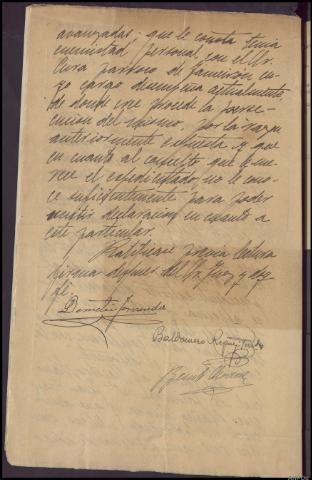 avanzadas; que le consta tenia
enemistad personal con el Sr.
Cura parroco de cu-
yo cargo desempeña actualmente
de donde cree procede la perse-
cucion del mismo, por la razon
anteriormente expuesta y que
en cuanto al concepto que le me-
rece el expedientado, no le cono-
ce suficientemente para poder
emitir declaracion en cuanto a
este particular.
Ratificase previa lectura
firma despues del Sr. Juez y doy
fe.
Baldomero